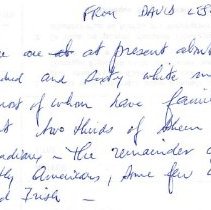 FROM DAVID
are at present about
and sixty white
most of whom have
two thirds of them
the remainder
Americans, some few
Irish —